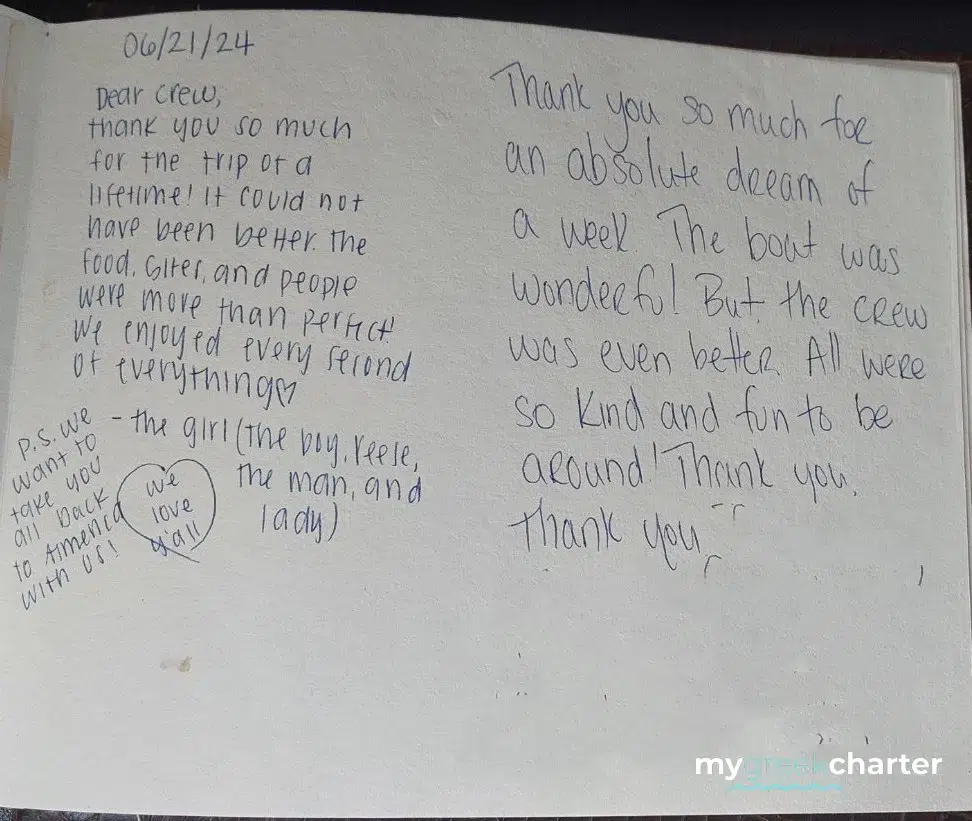 06/21/24
Dear crew,
thank you so much
for the trip of a
lifetime! It could not
have been better. The
food, sites, and people
were more than perfect!
We enjoyed every second
of everything♡
- the girl (the boy, reese,
the man, and
lady)
P.S. We
want to
take you
all back
to America
with us!
We
love
y'all
Thank you so much for
an absolute dream of
a week. The boat was
wonderful But the crew
was even better. All were
so kind and fun to be
around! Thank you,
thank you
mygreekcharter